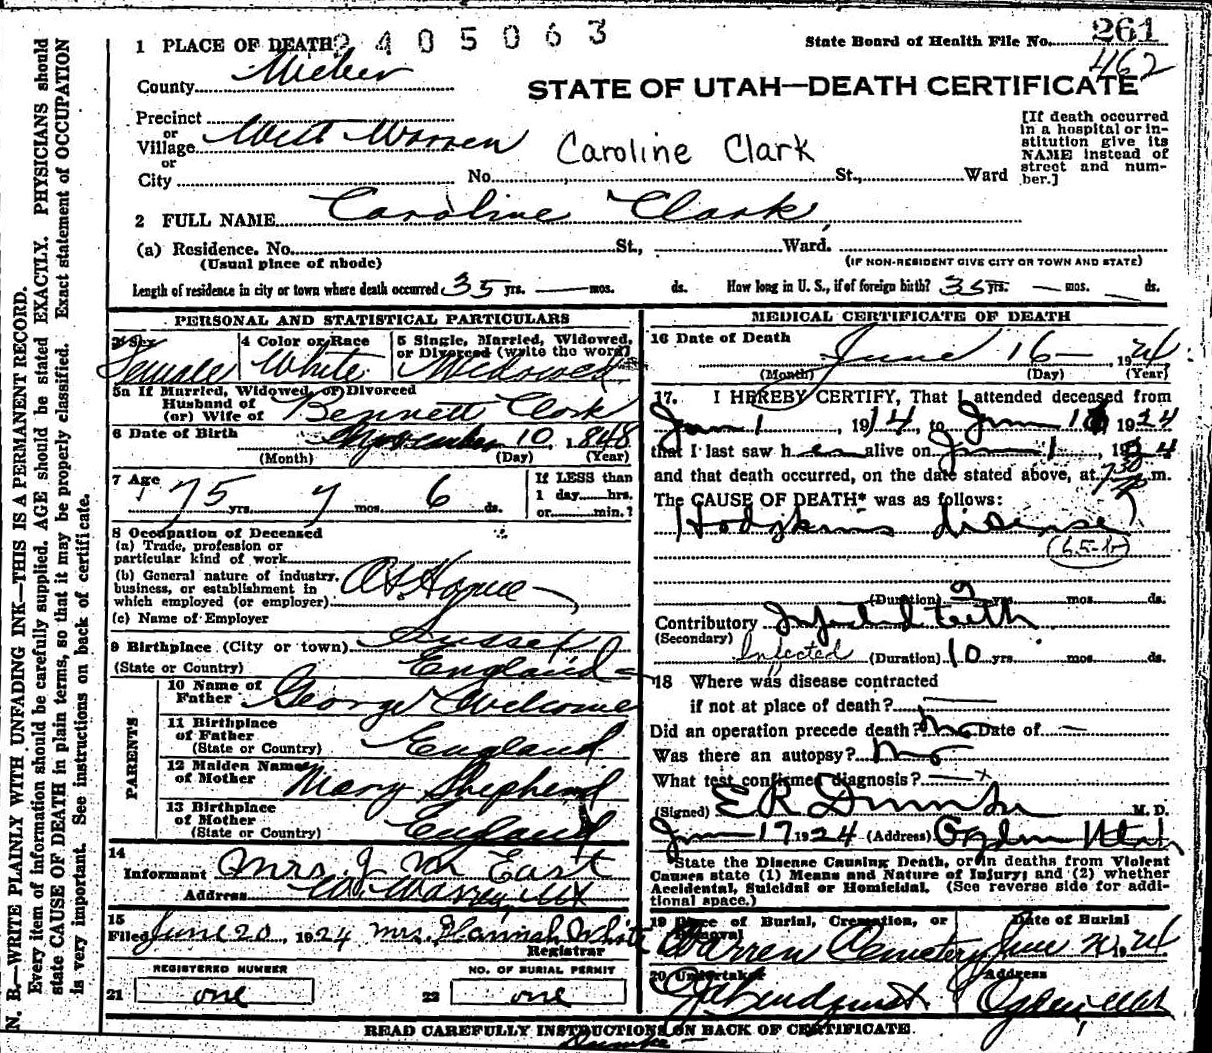 2405063
261
1 PLACE OF DEATH
State Board of Health File No.
462
County Weber
STATE OF UTAH—DEATH CERTIFICATE
Precinct
or
Village West Warren
or
City No. St., Ward
Caroline Clark
[If death occurred
in a hospital or in-
stitution give its
NAME instead of
street and num-
ber.]
2 FULL NAME Caroline Clark
(a) Residence. No. St., Ward.
(Usual place of abode) (IF NON-RESIDENT GIVE CITY OR TOWN AND STATE)
Length of residence in city or town where death occurred 35 yrs. — mos. ds. How long in U. S., if of foreign birth? 35 yrs. — mos. — ds.
PERSONAL AND STATISTICAL PARTICULARS
3 Sex 4 Color or Race 5 Single, Married, Widowed,
or Divorced (write the word)
Female White Widowed
5a If Married, Widowed, or Divorced
Husband of
(or) Wife of Bennett Clark
6 Date of Birth November 10, 1848
(Month) (Day) (Year)
7 Age 75 yrs. 7 mos. 6 ds.
If LESS than
1 day hrs.
or min.?
8 Occupation of Deceased
(a) Trade, profession or
particular kind of work
(b) General nature of industry,
business, or establishment in
which employed (or employer) At Home —
(c) Name of Employer
9 Birthplace (City or town) Sussex
(State or Country) England
PARENTS
10 Name of
Father George Welcome
11 Birthplace
of Father
(State or Country) England
12 Maiden Name
of Mother Mary Shepherd
13 Birthplace
of Mother
(State or Country) England
14
Informant Mrs. J. M. East
Address W. Warren, Ut
15
Filed June 20, 1924 Mrs. Hannah White
Registrar
REGISTERED NUMBER NO. OF BURIAL PERMIT
21 one 22 one
MEDICAL CERTIFICATE OF DEATH
16 Date of Death June 16— 1924
(Month) (Day) (Year)
17. I HEREBY CERTIFY, That I attended deceased from
Jun 1, 1914, to Jun 16 1924
that I last saw her alive on Jun 1, 1924
and that death occurred, on the date stated above, at 730 P m.
The CAUSE OF DEATH* was as follows:
Hodgkins disease
(65-b)
(Duration) 2 yrs. mos. ds.
Contributory Infected teeth
(Secondary)
Infected (Duration) 10 yrs. mos. ds.
18 Where was disease contracted
if not at place of death? —
Did an operation precede death? No Date of —
Was there an autopsy? No
What test confirmed diagnosis? —
(Signed) E R Dumke M. D.
Jun 17 1924 (Address) Ogden Utah
*State the Disease Causing Death, or in deaths from Violent
Causes state (1) Means and Nature of Injury; and (2) whether
Accidental, Suicidal or Homicidal. (See reverse side for addi-
tional space.)
19 Place of Burial, Cremation, or
Removal Date of Burial
Warren Cemetery June 20, 24
20 Undertaker Address
Lindquist Ogden, Utah
READ CAREFULLY INSTRUCTIONS ON BACK OF CERTIFICATE.
Dumke
N. B.—WRITE PLAINLY WITH UNFADING INK—THIS IS A PERMANENT RECORD.
Every item of information should be carefully supplied. AGE should be stated EXACTLY. PHYSICIANS should
state CAUSE OF DEATH in plain terms, so that it may be properly classified. Exact statement of OCCUPATION
is very important. See instructions on back of certificate.